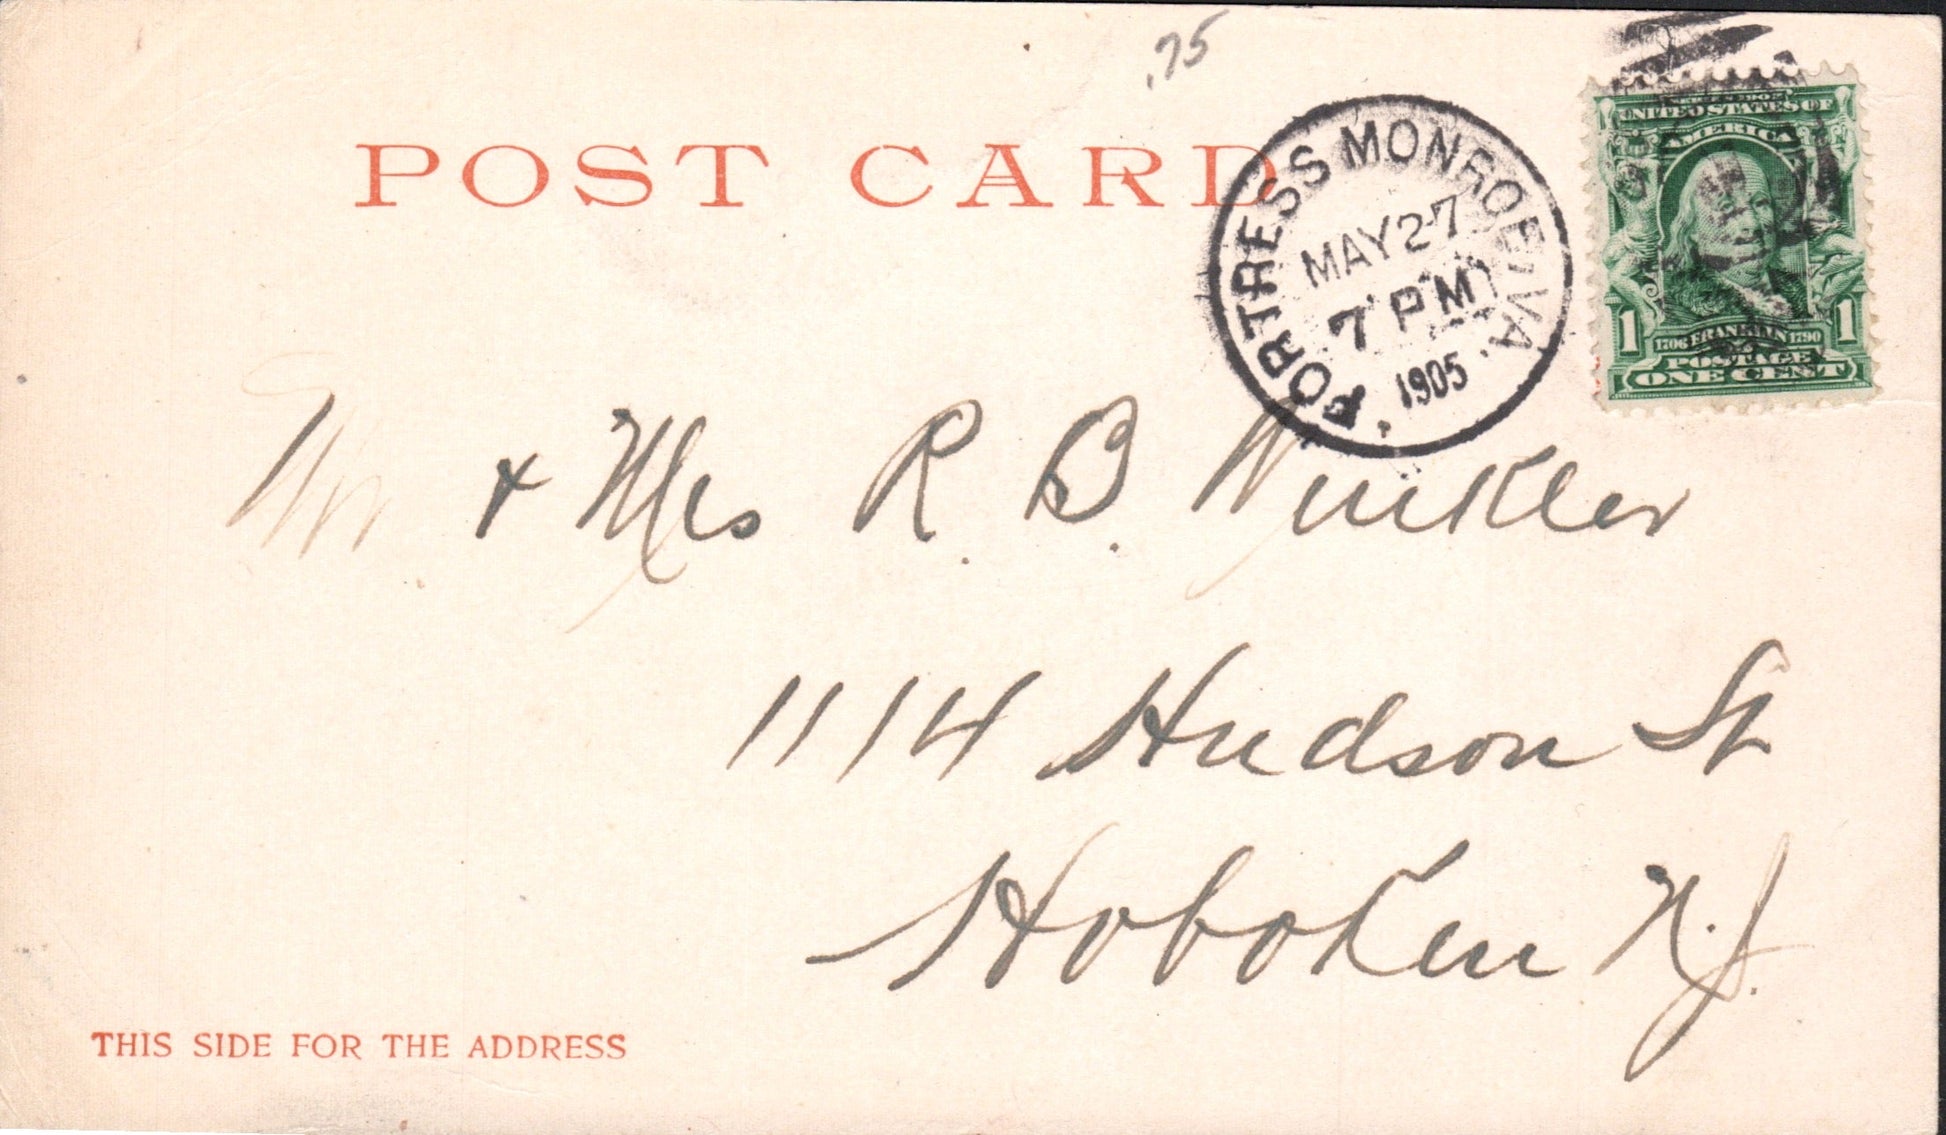 .75
POST CARD
FORTRESS MONROE, VA.
MAY 27
7 PM
1905
UNITED STATES OF
AMERICA
1 1
1706 FRANKLIN 1790
POSTAGE
ONE CENT
Mr & Mrs R. B. Winkler
1114 Hudson St
Hoboken N.J.
THIS SIDE FOR THE ADDRESS